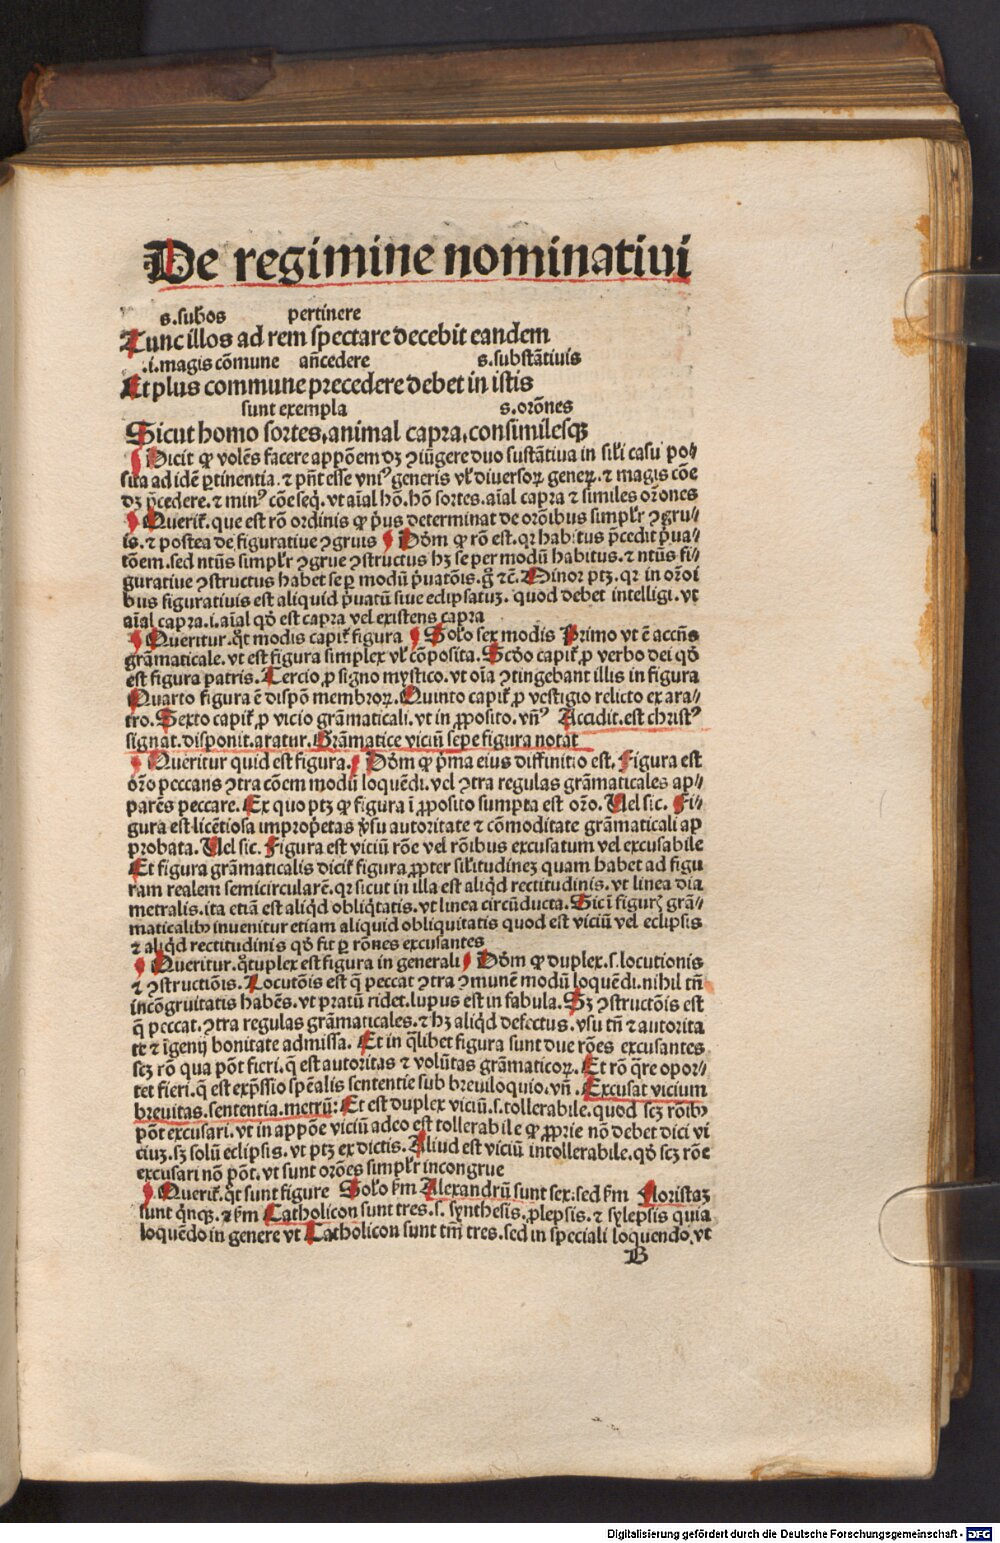 De regimine nominatiui
s.subos pertinere
Tunc illos ad rem spectare decebit eandem
.i.magis cōmune añcedere s.substātiuis
Et plus commune precedere debet in istis
sunt exempla s.orōnes
Sicut homo sortes,animal capra,consimilesqꝫ
Dicit ꝙ volēs facere appōem dꝫ ꝯiūgere duo sustātiua in sil'i casu po⸗
sita ad idē ꝑtinentia.⁊ pn̄t esse vniꝰ generis vl' diuersoꝝ geneꝝ.⁊ magis cōe
dꝫ p̄cedere.⁊ minꝰ cōe seq̇.vt aīal hō.hō sortes.aīal capra ⁊ similes orōnes
Querit̃.que est rō ordinis ꝙ p̄us determinat de orōibus simpl'r ꝯgru⸗
is.⁊ postea de figuratiue ꝯgruis Dōm ꝙ rō est.qr habitus p̄cedit p̄ua⸗
tōem.sed ntūs simpl'r ꝯgrue ꝯstructus hꝫ se per modū habitus.⁊ ntūs fi⸗
guratiue ꝯstructus habet se ꝑ modū p̄uatōis.g̃ ⁊c̄.Minor ptꝫ.qr in orōi
bus figuratiuis est aliquid p̄uatū siue eclipsatuꝫ.quod debet intelligi.vt
aīal capra.i.aīal qd̓ est capra vel existens capra
Queritur.q̇t modis capit̃ figura Solō sex modis Primo vt ē accn̄s
grāmaticale.vt est figura simplex vl' cōposita.Scd̓o capit̃ ꝓ verbo dei qd̓
est figura patris.Tercio ꝓ signo mystico.vt oīa ꝯtingebant illis in figura
Quarto figura ē dispō membroꝝ.Quinto capit̃ ꝓ vestigio relicto ex ara⸗
tro.Sexto capit̃ ꝓ vicio grāmaticali.vt in ꝓposito.vn̄ꝰ Accidit.est christꝰ
signat.disponit.aratur.Grāmatice viciū sepe figura notat
Queritur quid est figura. Dōm ꝙ p̄ma eius diffinitio est.Figura est
orō peccans ꝯtra cōem modū loquēdi.vel ꝯtra regulas grāmaticales ap⸗
parēs peccare.Ex quo ptꝫ ꝙ figura ī ꝓposito sumpta est orō.Uel sic. Fi⸗
gura est licētiosa impropetas v̓su autoritate ⁊ cōmoditate grāmaticali ap
probata.Uel sic.Figura est viciū rōe vel rōibus excusatum vel excusabile
Et figura grāmaticalis dicit̃ figura ꝓpter sil'itudineꝫ quam habet ad figu
ram realem semicircularē.qr sicut in illa est aliqd̓ rectitudinis.vt linea dia
metralis.ita etiā est aliqd̓ obliq̇tatis.vt linea circūducta.Sic ī figurꝭ grā⸗
maticalibꝰ inuenitur etiam aliquid obliquitatis quod est viciū vel eclipsis
⁊ aliqd̓ rectitudinis qd̓ fit ꝑ rōnes excusantes
Queritur.q̇tuplex est figura in generali Dōm ꝙ duplex.s.locutionis
⁊ ꝯstructiōis.Locutōis est q̄ peccat ꝯtra ꝯmunē modū loquēdi.nihil tn̄
incōgruitatis habēs.vt pratū ridet.lupus est in fabula.Sꝫ ꝯstructōis est
q̄ peccat.ꝯtra regulas grāmaticales.⁊ hꝫ aliqd̓ defectus.vsu tn̄ ⁊ autorita
te ⁊ īgenij bonitate admissa. Et in q̄libet figura sunt due rōes excusantes
scꝫ rō qua pōt fieri.q̄ est autoritas ⁊ volūtas grāmaticoꝝ.Et rō q̄re opor⸗
tet fieri.q̄ est exp̄ssio spēalis sententie sub breuiloquio.vn̄ .Excusat vicium
breuitas.sententia.metrū:Et est duplex viciū.s.tollerabile.quod scꝫ rōibꝰ
pōt excusari.vt in appōe viciū adeo est tollerabile ꝙ ꝓprie nō debet dici vi
ciuꝫ.sꝫ solū eclipsis.vt ptꝫ ex dictis.Aliud est viciū intollerabile.qd̓ scꝫ rōe
excusari nō pōt.vt sunt orōes simpl'r incongrue
Querit̃.q̇t sunt figure Solō ẜm Alexandrū sunt sex:sed ẜm Floristaꝫ
sunt q̇nqꝫ.⁊ ẜm Catholicon sunt tres.s.synthesis.ꝓlepsis.⁊ sylepsis quia
loquēdo in genere vt Catholicon sunt tm̄ tres.sed in speciali loquendo.vt
B
Digitalisierung gefördert durch die Deutsche Forschungsgemeinschaft - DFG